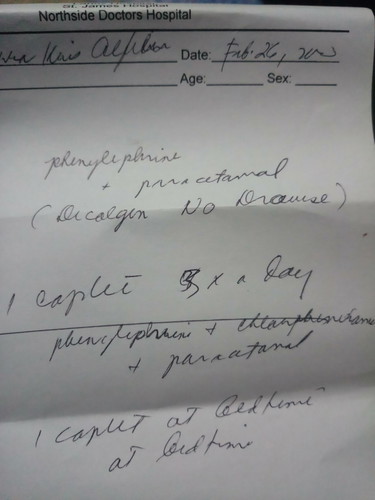 St. James Hospital
Northside Doctors Hospital
Kris Date: Feb. 26,
Age: Sex:
phenylephrine
+ paracetamol
(Decolgen No Drowse)
1 caplet 3 x a day
phenylephrine +
+ paracetamol
1 caplet at bedtime
at bedtime